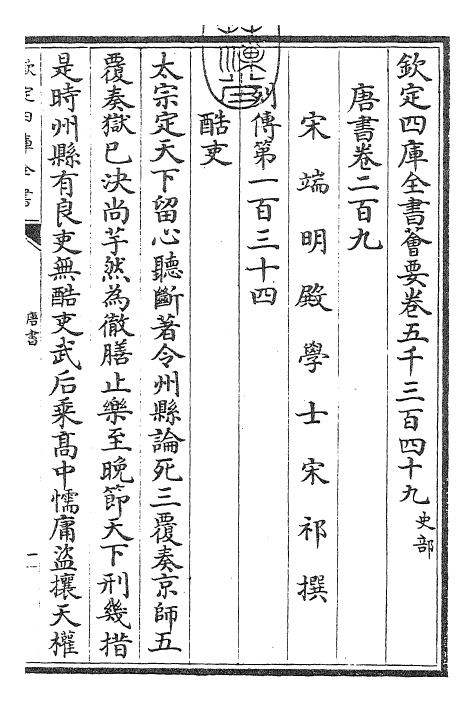 欽定四庫全書薈要卷五千三百四十九史部
唐書卷二百九
宋端明殿學士宋祁撰
列傳第一百三十四
酷吏
太宗定天下留心聽斷著令州縣論死三覆奏京師五
覆奏獄已決尚芋然為徹膳止樂至晚節天下刑幾措
是時州縣有良吏無酷吏武后乘高中懦庸盜攘天權
欽定四庫全書
唐書
一